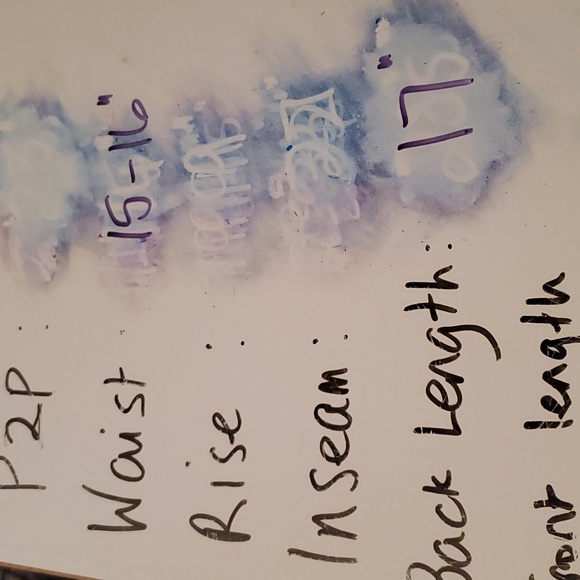 P2P :
Waist 15-16"
Rise :
Inseam :
Back Length : 17"
Front length